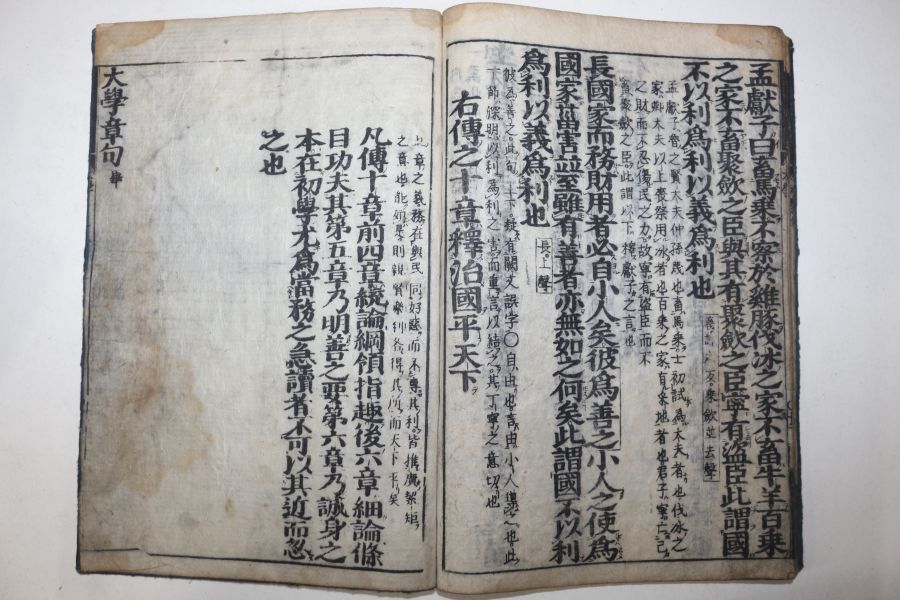 孟獻子曰畜馬乘不察於雞豚伐冰之家不畜牛羊百乘
之家不畜聚斂之臣與其有聚斂之臣寧有盜臣此謂國
不以利爲利以義爲利也
孟獻子魯之賢大夫仲孫蔑也畜馬乘士初試爲大夫者也伐冰之
家卿大夫以上喪祭用冰者也百乘之家有采地者也君子寧亡己
之財而不忍傷民之力故寧有盜臣而不
畜聚斂之臣此謂以下釋獻子之言也
長國家而務財用者必自小人矣彼爲善之小人之使爲
國家菑害並至雖有善者亦無如之何矣此謂國不以利
爲利以義爲利也
長上聲
彼爲善之此句上下疑有闕文誤字〇自由也言由小人導之也此
一節深明以利爲利之害而重言以結之其丁寧之意切也
右傳之十章釋治國平天下
此章之義務在與民同好惡而不專其利皆推廣絜矩
之意也能如是則親賢樂利各得其所而天下平矣
凡傳十章前四章統論綱領指趣後六章細論條
目功夫其第五章乃明善之要第六章乃誠身之
本在初學尤爲當務之急讀者不可以其近而忽
之也
大學章句